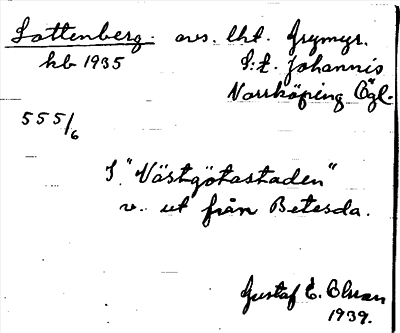 Lottenberg. avs. lht. Grymyr.
hb 1935 S:t. Johannis
Norrköping Ögl.
555/6
I "Västgötastaden"
v. ut från Betesda.
Gustaf E. Olsson
1939.